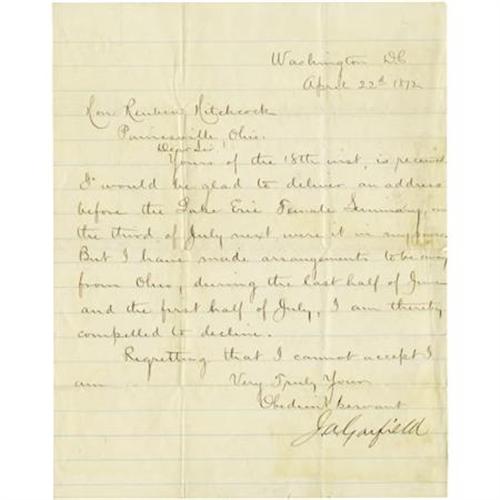 Washington DC
April 22d 1872
Hon Reuben Hitchcock
Painesville Ohio.
Dear Sir!
Yours of the 18th inst, is received
I would be glad to deliver an address
before the Lake Erie Female Seminary, on
the third of July next were it in my power
But I have made arrangements to be away
from Ohio, during the last half of June
and the first half of July, I am thereby
compelled to decline.
Regretting that I cannot accept I
am Very Truly Yours
Obedient Servant
J A Garfield